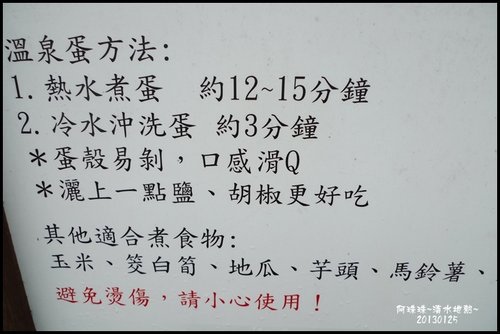 溫泉蛋方法:
1. 熱水煮蛋 約12~15分鐘
2. 冷水沖洗蛋 約3分鐘
＊蛋殼易剝，口感滑Q
＊灑上一點鹽、胡椒更好吃
其他適合煮食物:
玉米、筊白筍、地瓜、芋頭、馬鈴薯、
避免燙傷，請小心使用！
阿珠珠~清水地熱~
20130125